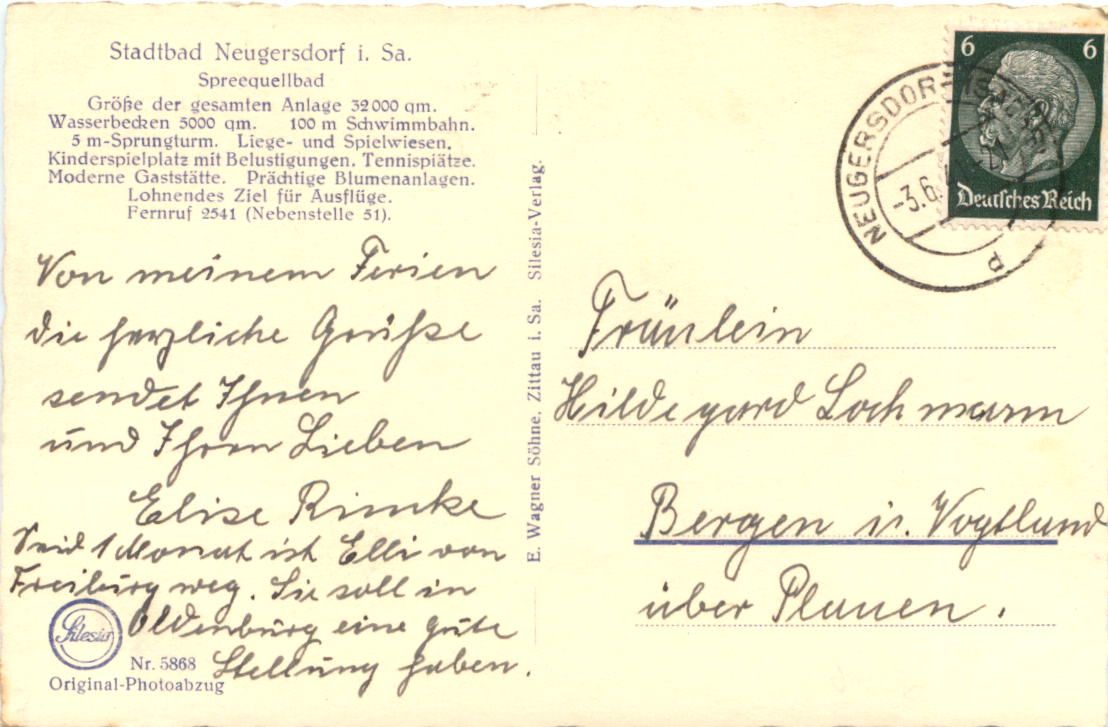 Stadtbad Neugersdorf i. Sa.
Spreequellbad
Größe der gesamten Anlage 32000 qm.
Wasserbecken 5000 qm. 100 m Schwimmbahn.
5 m-Sprungturm. Liege- und Spielwiesen.
Kinderspielplatz mit Belustigungen. Tennisplätze.
Moderne Gaststätte. Prächtige Blumenanlagen.
Lohnendes Ziel für Ausflüge.
Fernruf 2541 (Nebenstelle 51).
Von meinem Ferien
die herzliche Grüße
sendet Ihnen
und Ihren Lieben
Elise Rimke
Seid 1 Monat ist Elli von
Freiburg weg. Sie soll in
Oldenburg eine gute
Stellung haben.
Silesia
Nr. 5868
Original-Photoabzug
E. Wagner Söhne, Zittau i. Sa. Silesia-Verlag.
6 6
Deutsches Reich
NEUGERSDORF (SACHSEN)
-3.6.
d
Fräulein
Hildegard Lochmann
Bergen i. Vogtland
über Plauen.